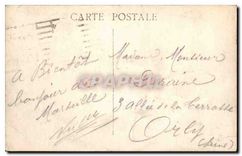 CARTE POSTALE
A Bientôt
bonjour de
Marseille
Madame Monsieur
3 allée de la Terrasse
Orly
(Seine)